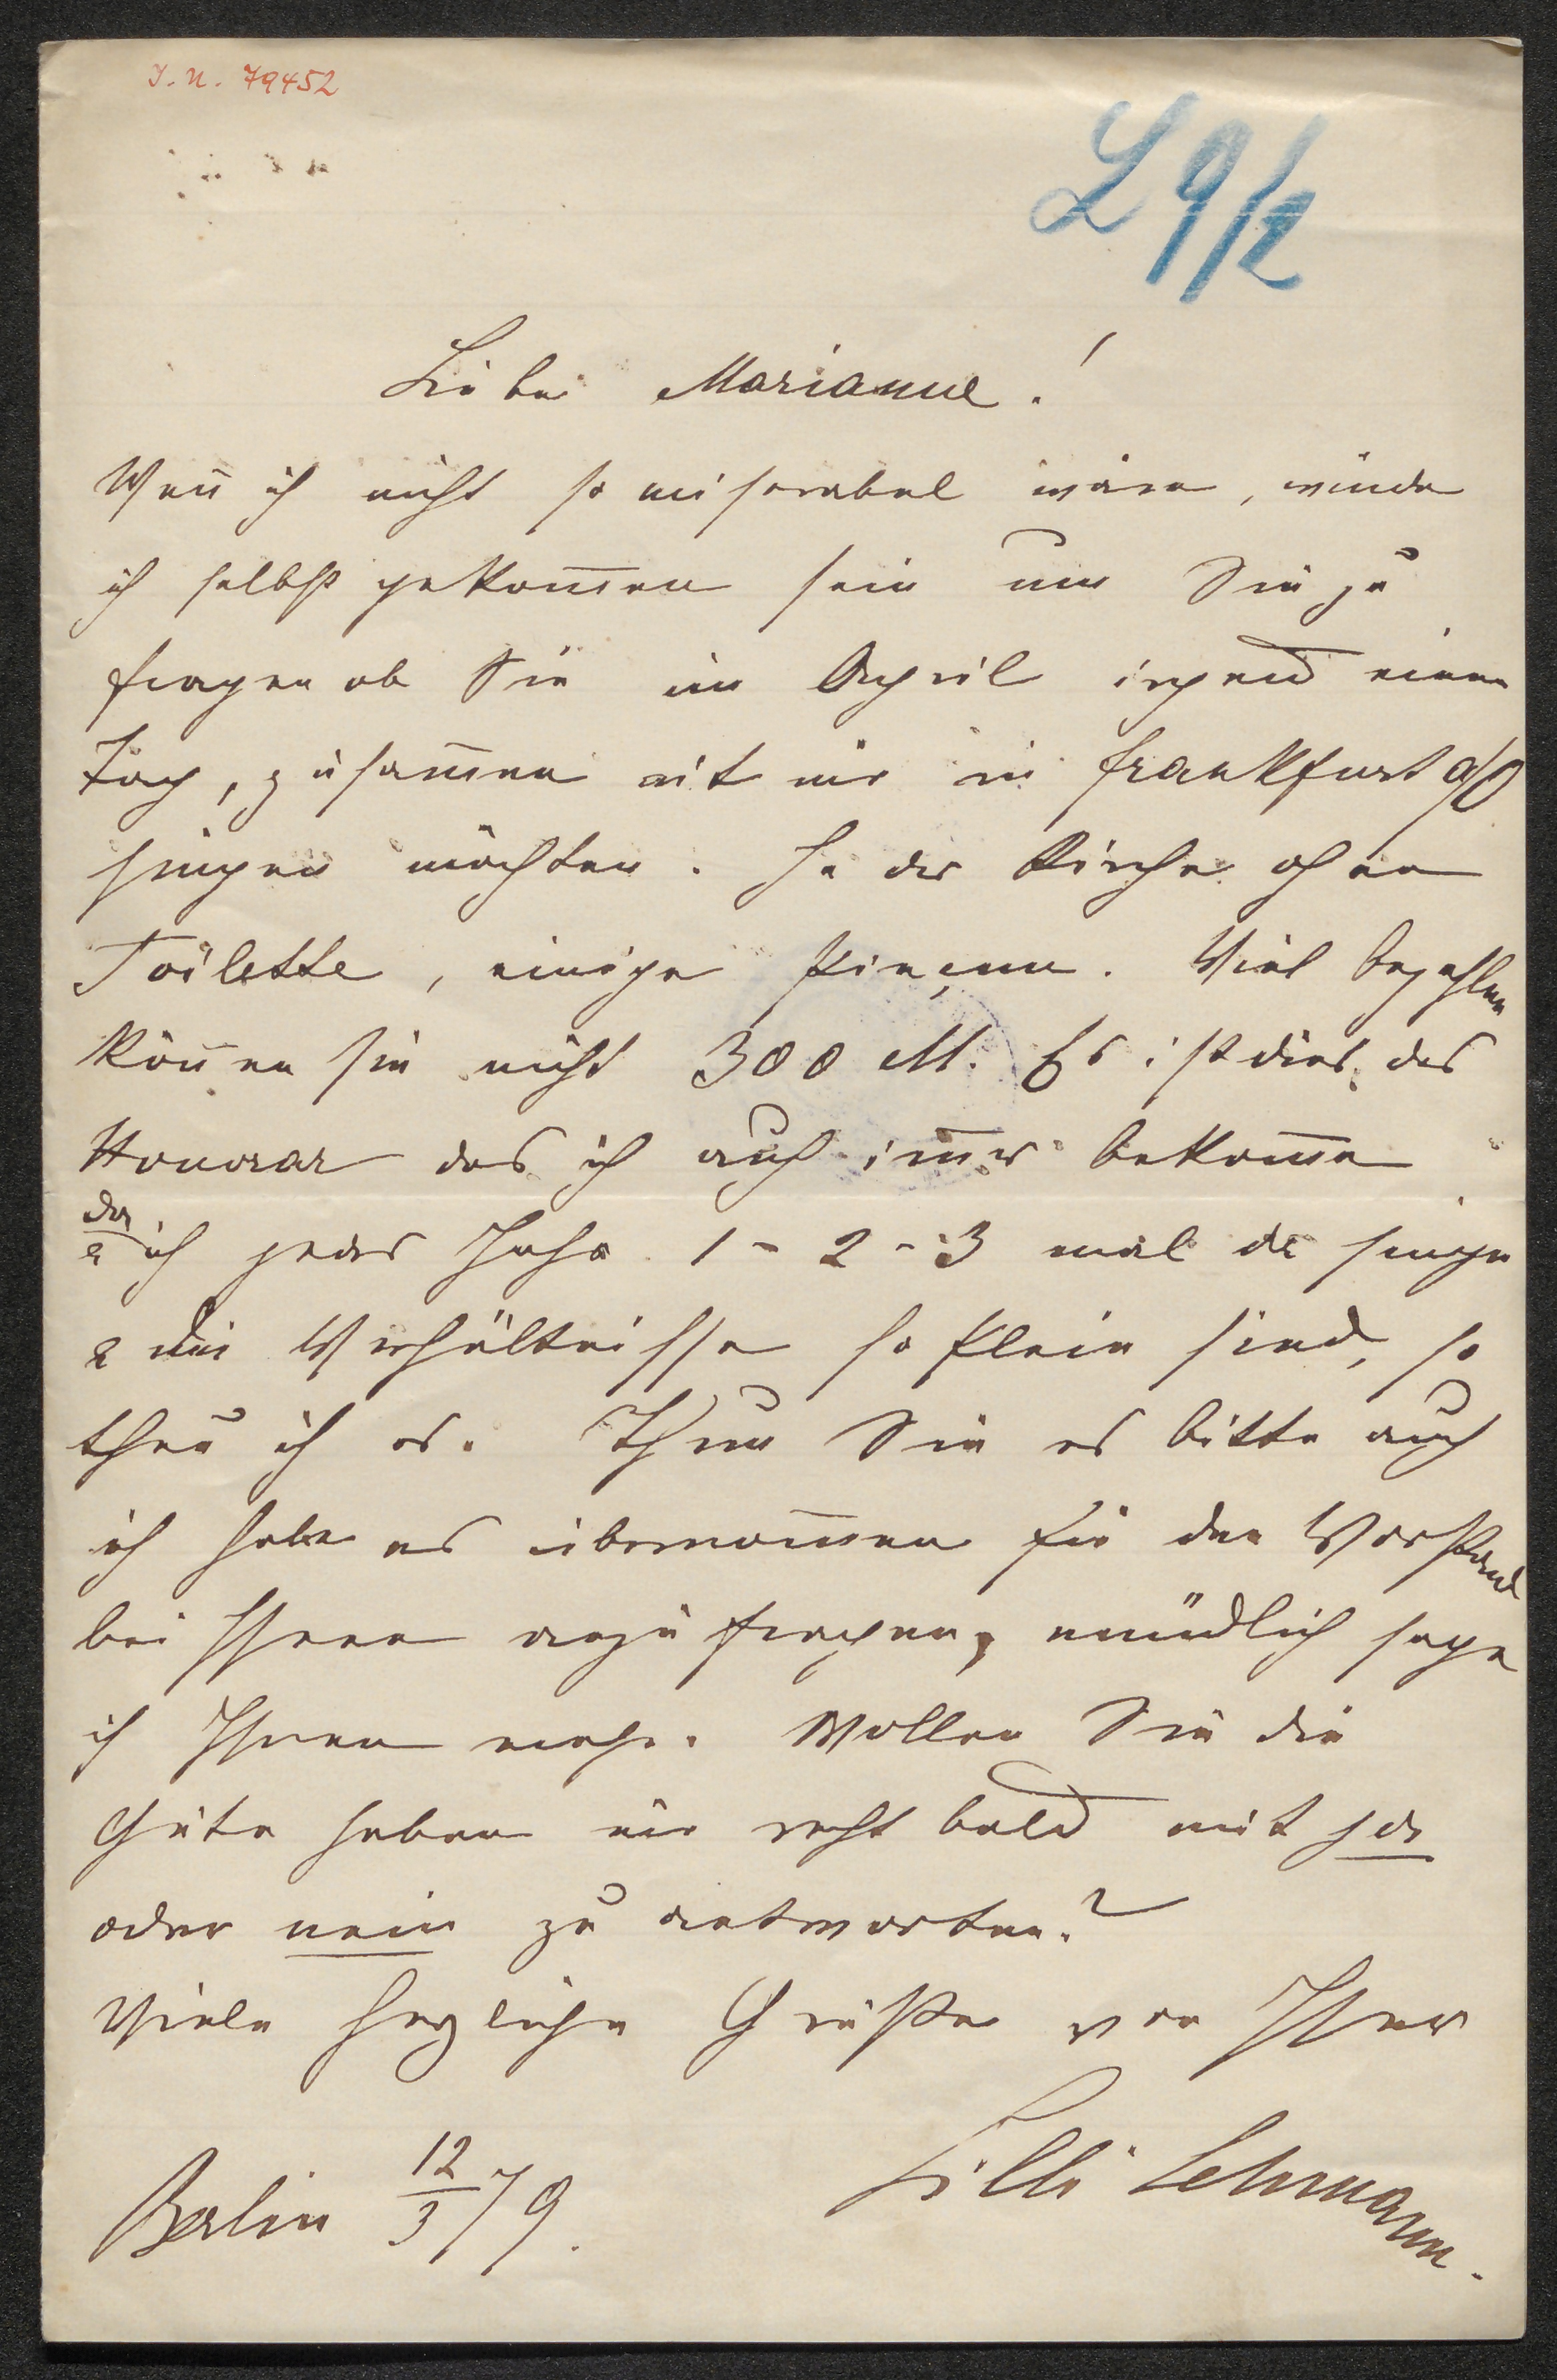 I. N. 79452
L 9/2
Liebe Marianne!
Wen̄ ich nicht so miserabel wäre, würde
ich selbst gekom̄en sein um Sie zu
fragen ob Sie im April irgend einen
Tag, zusam̄en mit mir in Frankfurt a/O
singen möchten. In der Kirche ohne
Toilette, einige Pieçen. Viel bezahlen
kön̄en sie nicht 300 M. Es ist dies das
Honorar das ich auch im̄er bekom̄e
da
& ich jedes Jahr 1-2-3 mal da singe
& die Verhältnisse so klein sind, so
thu ich es. Thun Sie es bitte auch
ich habe es übernom̄en für den Vorstand
bei Ihnen anzufragen, mündlich sage
ich Ihnen mehr. Wollen Sie die
Güte haben mir recht bald mit ja
oder nein zu antworten?
Viele herzliche Grüße von Ihrer
Lilli Lehmann.
Berlin 12/3 79.